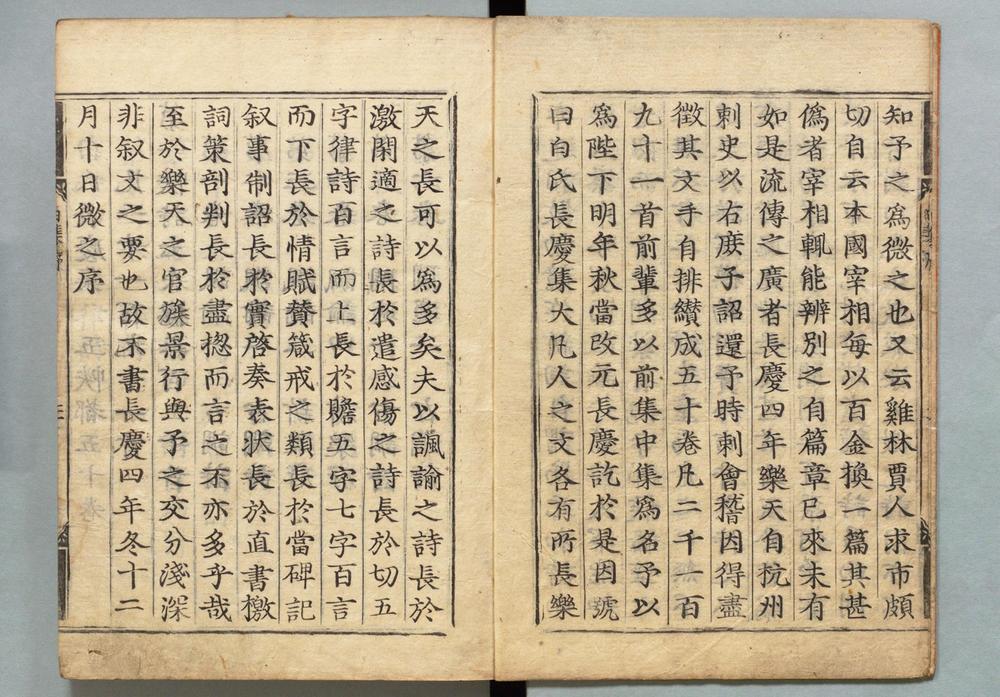 知予之爲微之也又云雞林賈人求市頗
切自云本國宰相每以百金換一篇其甚
僞者宰相輒能辨別之自篇章已來未有
如是流傳之廣者長慶四年樂天自杭州
刺史以右庶子詔還予時刺會稽因得盡
徵其文手自排纘成五十卷凡二千一百
九十一首前輩多以前集中集爲名予以
爲陛下明年秋當改元長慶訖於是因號
曰白氏長慶集大凡人之文各有所長樂
天之長可以爲多矣夫以諷諭之詩長於
激閑適之詩長於遣感傷之詩長於切五
字律詩百言而上長於贍五字七字百言
而下長於情賦贊箴戒之類長於當碑記
叙事制詔長於實啓奏表狀長於直書檄
詞策剖判長於盡揔而言之不亦多乎哉
至於樂天之官簇景行與予之交分淺深
非叙文之要也故不書長慶四年冬十二
月十日微之序